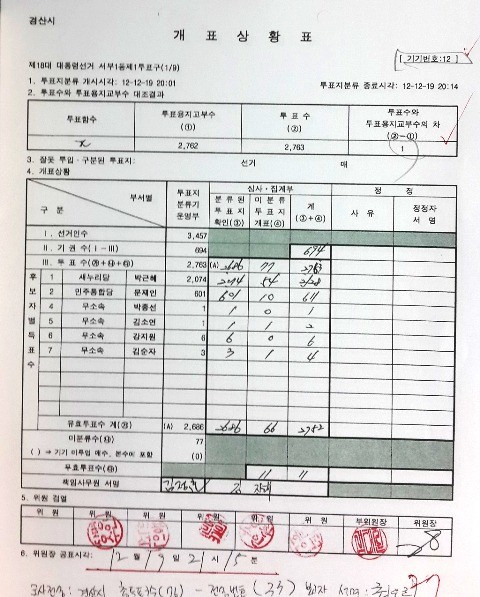 경산시
개 표 상 황 표
[ 기기번호:12 ]
제18대 대통령선거 서부1동제1투표구(1/9)
1. 투표지분류 개시시각: 12-12-19 20:01 투표지분류 종료시각: 12-12-19 20:14
2. 투표수와 투표용지교부수 대조결과
투표함수 투표용지교부수 (①) 투 표 수 (②) 투표수와 투표용지교부수의 차 (②-①)
2,762 2,763 1
3. 잘못 투입·구분된 투표지: 선거 매
4. 개표상황
구 분 부서별 투표지 분류기 운영부 심사·집계부 정 정
분 류 된 투 표 지 확인(③) 미 분 류 투 표 지 개표(④) 계 (③+④) 사 유 정정자 서 명
Ⅰ. 선거인수 3,457
Ⅱ. 기 권 수 (Ⅰ-Ⅲ) 694 694
Ⅲ. 투 표 수 2,763 (A) 2686 77 2763
후보자별득표수
1 새누리당 박근혜 2,074 2074 54 2128
2 민주통합당 문재인 601 601 10 611
4 무소속 박종선 1 1 0 1
5 무소속 김소연 1 1 1 2
6 무소속 강지원 6 6 0 6
7 무소속 김순자 3 3 1 4
유효투표수 계 (A) 2,686 2686 66 2752
미분류수 77
( ) ⇒ 기기 미투입 매수, 본수에 포함 (0)
무효투표수 11 11
책임사무원 서명
5. 위원 검열
위 원 위 원 위 원 위 원 위 원 위 원 부위원장 위원장
6. 위원장 공표시각: 12 월 19 일 21 시 5 분